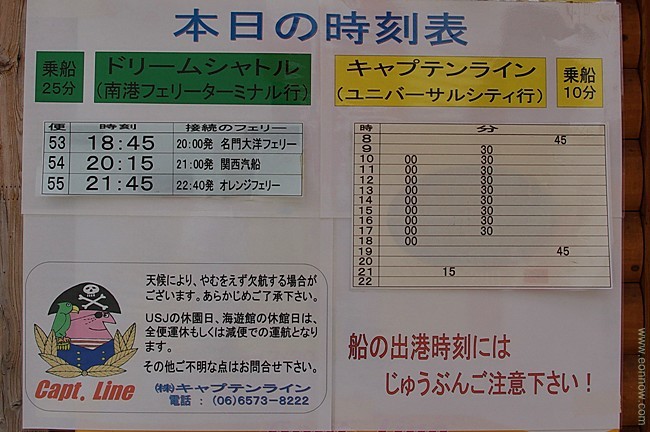 本日の時刻表
乗船
25分
ドリームシャトル
(南港フェリーターミナル行)
キャプテンライン
(ユニバーサルシティ行)
乗船
10分
便 時刻 接続のフェリー
53 18:45 20:00発 名門大洋フェリー
54 20:15 21:00発 関西汽船
55 21:45 22:40発 オレンジフェリー
時 分
8 45
9 30
10 00 30
11 00 30
12 00 30
13 00 30
14 00 30
15 00 30
16 00 30
17 00 30
18 00
19 45
20
21 15
22
天候により、やむをえず欠航する場合が
ございます。あらかじめご了承下さい。
USJの休園日、海遊館の休館日は、
全便運休もしくは減便での運航となり
ます。
その他ご不明な点はお問合せ下さい。
Capt. Line
㈱キャプテンライン
電話 : (06)6573-8222
船の出港時刻には
じゅうぶんご注意下さい!
www.eonnow.com